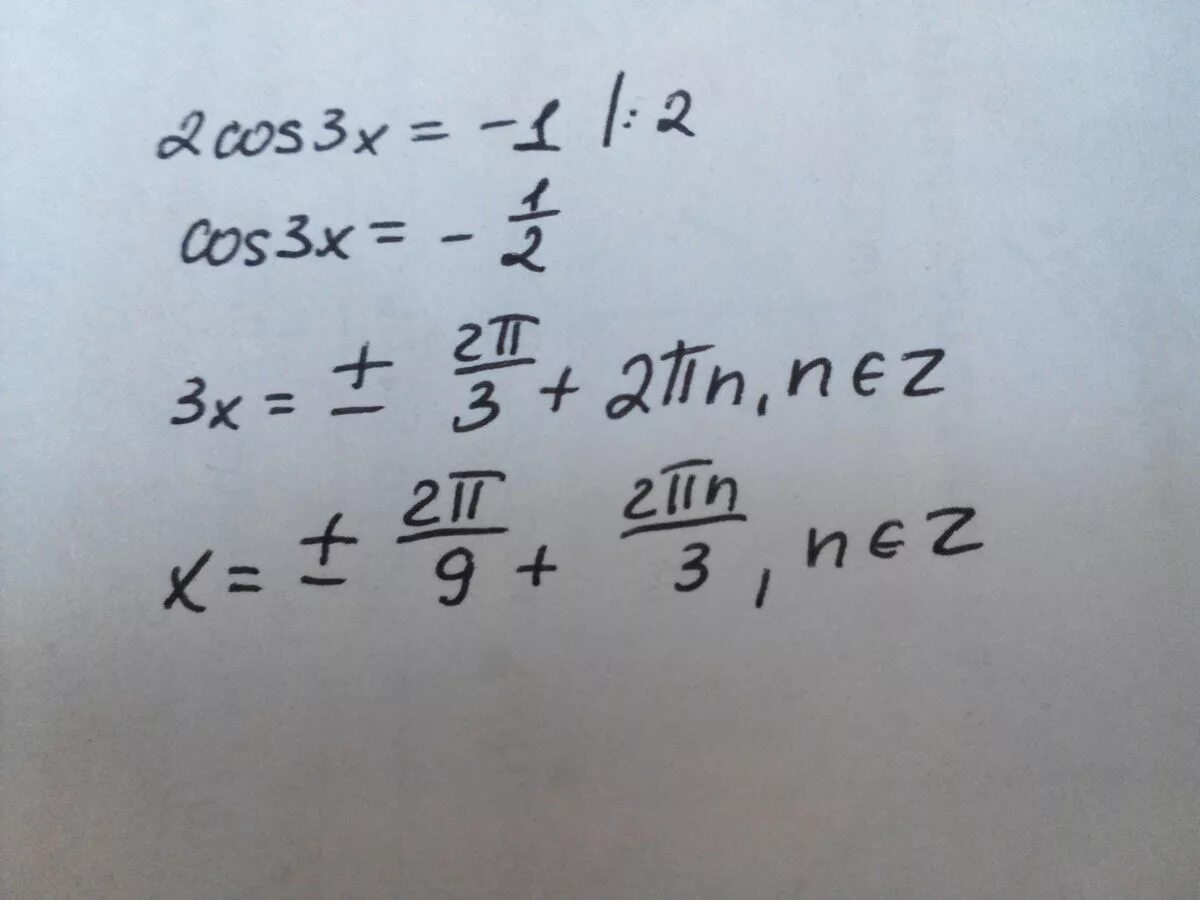 2cos3x = -1 |:2
cos3x = - 1/2
3x = ± 2π/3 + 2πn, n ∈ Z
x = ± 2π/9 + 2πn/3, n ∈ Z